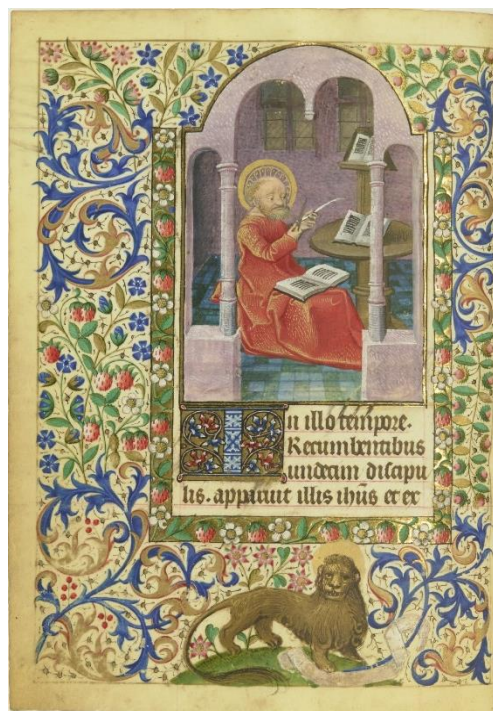 In illo tempore.
Recumbentibus
undecim discipu
lis. apparuit illis ihūs et ex